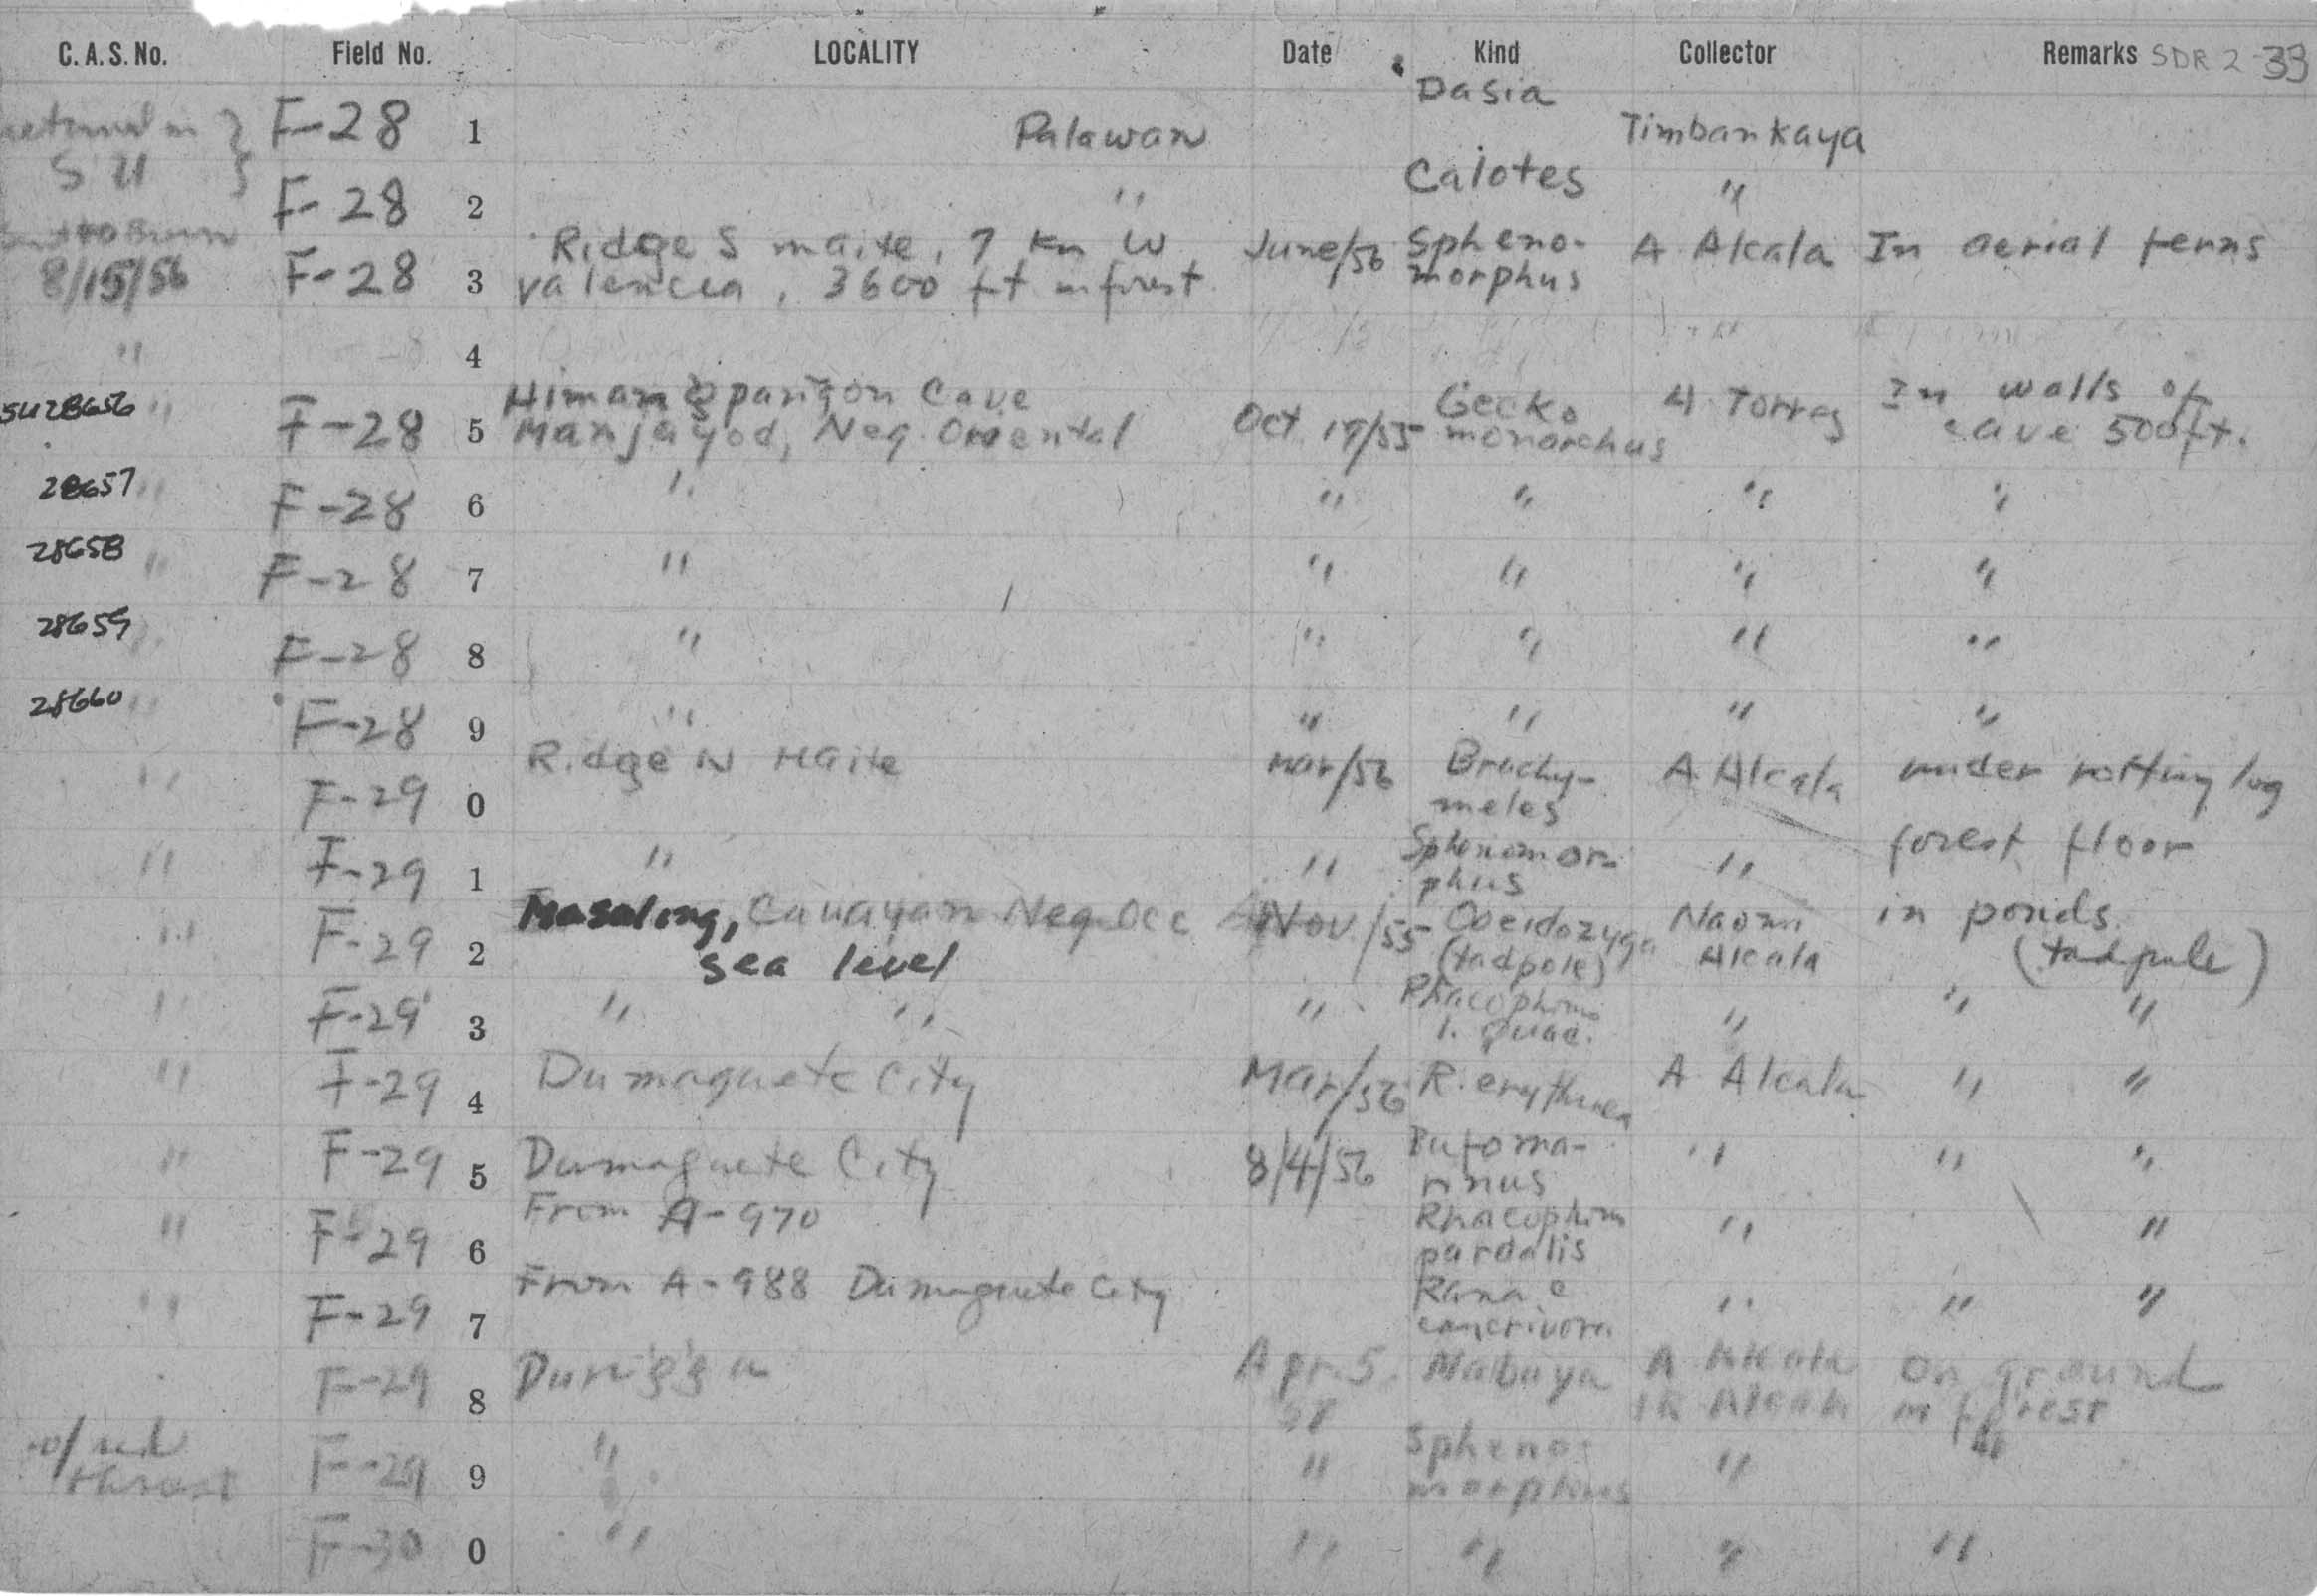 C. A. S. No. Field No. LOCALITY Date Kind Collector Remarks SDR 2-33
S U } F-28 1 Palawan Dasia Timbankaya
F-28 2 " Calotes "
8/15/56 F-28 3 Ridge S maite, 7 Km W June/56 Spheno- A Alcala In aerial ferns
Valencia, 3600 ft in forest morphus
" 4
SU 28656 " F-28 5 Cave Oct 19/55 Gecko H Torres In walls of
Manjuyod, Neg. Oriental monarchus cave 500 ft.
28657 " F-28 6 " " " " "
28658 " F-28 7 " " " " "
28659 " F-28 8 " " " " "
28660 " F-28 9 " " " " "
" F-29 0 Ridge N Maite Mar/56 Brachy- A. Alcala under rotting log
meles
" F-29 1 " " Sphenomor- " forest floor
phus
" F-29 2 Masaling, Cauayan Neg. Occ Nov./55 Ooeidozyga Naomi in ponds
sea level (tadpole) Alcala (tadpole)
" F-29 3 " " " " " "
l. quad.
" F-29 4 Dumaguete City Mar/56 R. erythraea A Alcala " "
" F-29 5 Dumaguete City 8/4/56 Bufo ma- " " "
rinus
" F-29 6 From A-970 " "
pardalis
" F-29 7 From A-988 Dumaguete City Rana c " " "
cancrivora
F-29 8 Apr. 5 Mabuya A Alcala On ground
Alcala in forest
red F-29 9 " " Spheno- " "
throat morphus
F-30 0 " " " " "